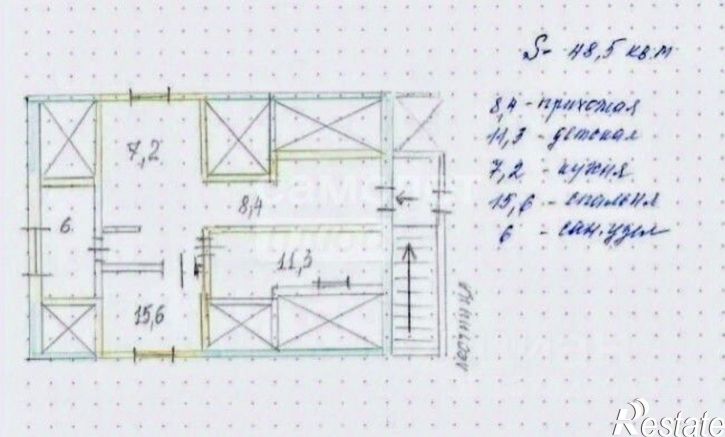 S- 48,5 кв.м
8,4 - прихожая
11,3 - детская
7,2 - кухня
15,6 - спальня
6 - сан.узел
7,2
6
8,4
11,3
15,6
лестница
Restate